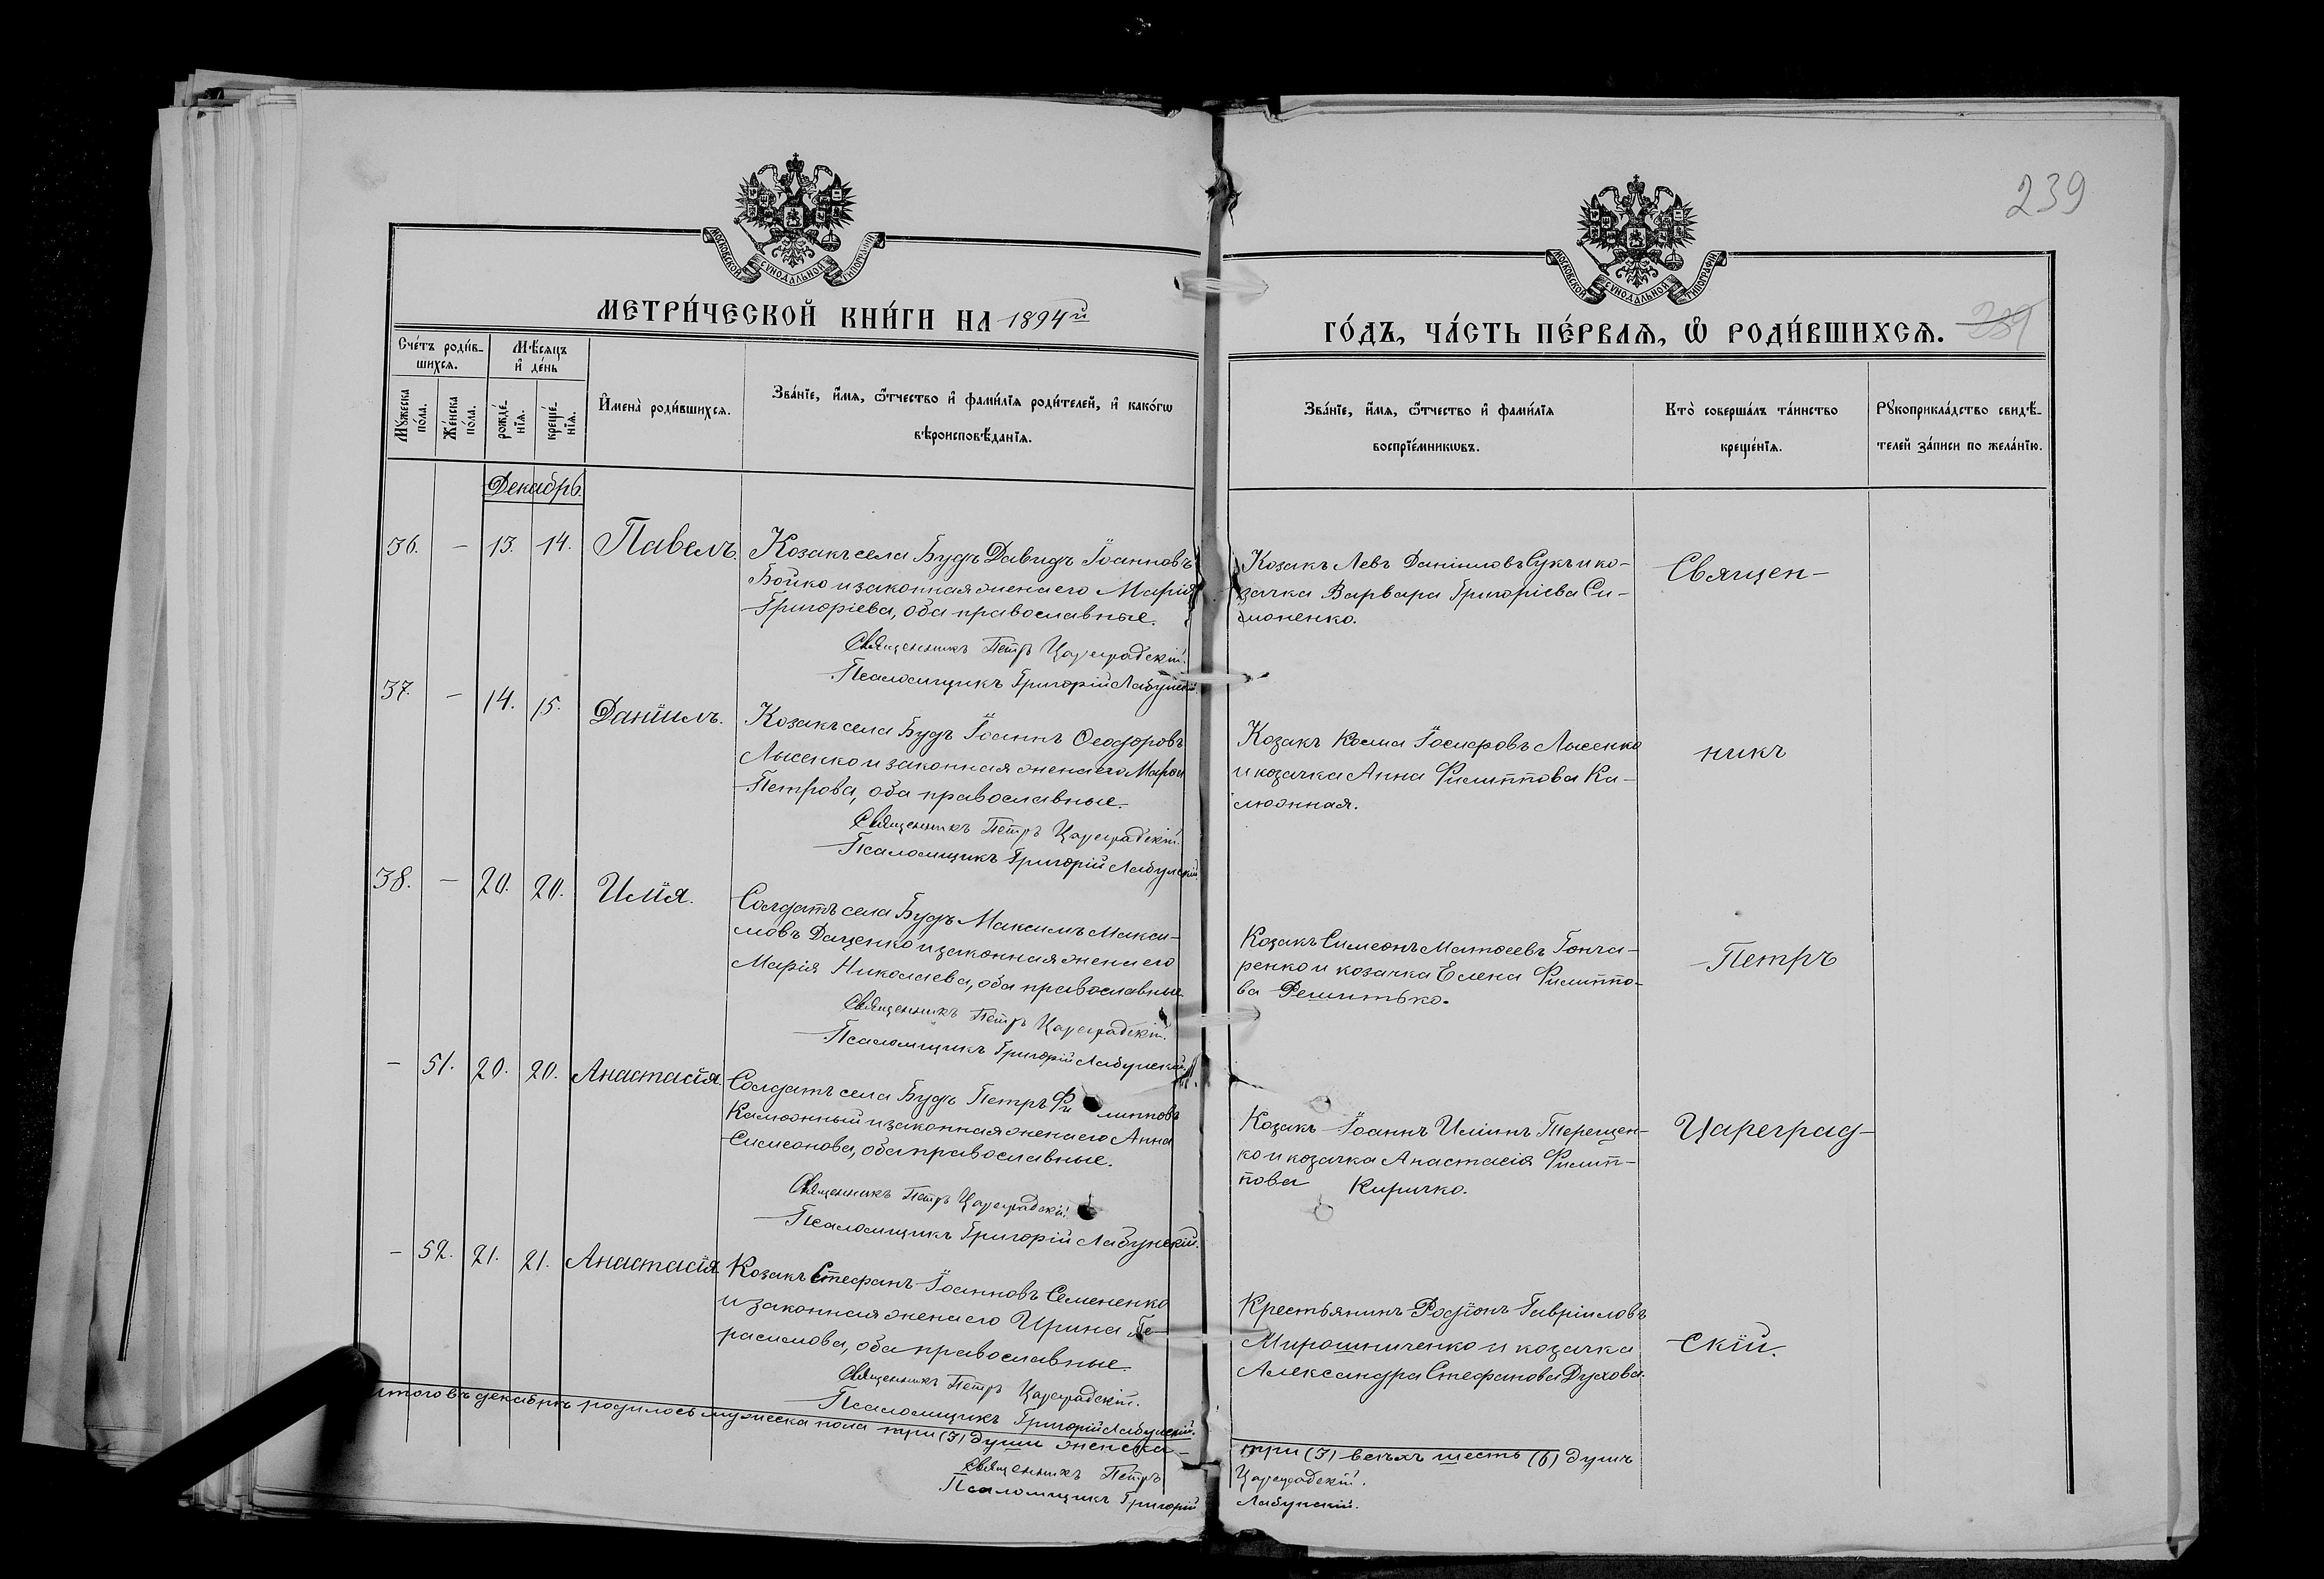 239
МОСКОВСКОЙ СУНОДАЛЬНОЙ ТИПОГРАФІИ
МОСКОВСКОЙ СУНОДАЛЬНОЙ ТИПОГРАФІИ
МЕТРИ́ЧЕСКОЙ КНИ́ГИ НА 1894й
ГО́ДЪ, ЧА́СТЬ ПЕ́РВАѦ, Ѡ РОДИ́ВШИХСѦ. 239
Сче́тъ роди́в-
шихсѧ.
Мѣ́сѧцъ
и де́нь
Мꙋ́жеска
по́ла.
Же́нска
по́ла.
рожде́-
нїѧ.
креще́-
нїѧ.
И҆мена̀ роди́вшихсѧ.
Зва́нїе, и҆́мѧ, ѻ҆́тчество и҆ фами́лїѧ роди́телей, и҆ како́гѡ
вѣроисповѣ́данїѧ.
Зва́нїе, и҆́мѧ, ѻ҆́тчество и҆ фами́лїѧ
воспрїе́мникѡвъ.
Кто̀ соверша́лъ та́инство
креще́нїѧ.
Рꙋкоприкла́дство свидѣ́-
телей за́писи по жела́нїю.
Декабрь.
36. — 13. 14. Павелъ.
Козакъ села Будъ Давидъ Іоанновъ
Бойко и законная жена его Марія
Григоріева, оба православные.
Священникъ Петръ Цареградскій.
Псаломщикъ Григорій Лабунскій.
Козакъ Левъ Даніиловъ Сукъ и ко-
зачка Варвара Григоріева Си-
моненко.
Священ-
37. — 14. 15. Даніилъ.
Козакъ села Будъ Іоаннъ Ѳеодоровъ
Лысенко и законная жена его Марѳа
Петрова, оба православные.
Священникъ Петръ Цареградскій.
Псаломщикъ Григорій Лабунскій.
Козакъ Косма Іосифовъ Лысенко
и козачка Анна Филиппова Ка-
люжная.
никъ
38. — 20. 20. Илія.
Солдатъ села Будъ Максимъ Макси-
мовъ Даценко и законная жена его
Марія Николаева, оба православные.
Священникъ Петръ Цареградскій.
Псаломщикъ Григорій Лабунскій.
Козакъ Симеонъ Матѳеевъ Гонча-
ренко и козачка Елена Филиппо-
ва Решитько.
Петръ
— 51. 20. 20. Анастасія.
Солдатъ села Будъ Петръ Филипповъ
Калюжный и законная жена его Анна
Симеонова, оба православные.
Священникъ Петръ Цареградскій.
Псаломщикъ Григорій Лабунскій.
Козакъ Іоаннъ Иліинъ Терещен-
ко и козачка Анастасія Филип-
пова Киричко.
Цареград-
— 52. 21. 21. Анастасія.
Козакъ Стефанъ Іоанновъ Семененко
и законная жена его Ирина Ге-
расимова, оба православные.
Священникъ Петръ Цареградскій.
Псаломщикъ Григорій Лабунскій.
Крестьянинъ Родіонъ Гавріиловъ
Мирошниченко и козачка
Александра Стефанова Духова.
скій.
Итого въ декабрѣ родилось мужеска пола три (3) души женска—
три (3) всехъ шесть (6) душъ
Священникъ Петръ
Цареградскій.
Псаломщикъ Григорій
Лабунскій.